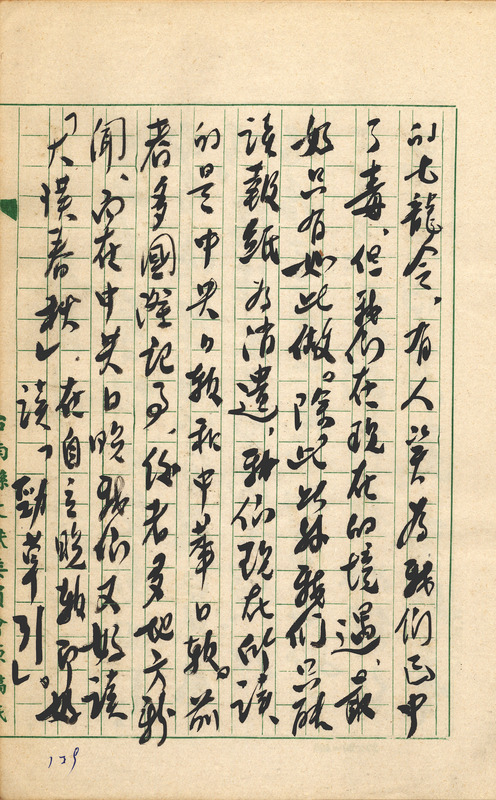 的七龍令,有人笑為我們已中
了毒、但我們在現在的境遇、最
好只有如此做。除此此外我們只能
讀報紙為消遣,我們現在所讀
的是中央日報和中華日報。前
者多國際記事,後者多地方新
聞、而在中央日晚我們又好讀
「大漢春秋」.在自立晚報即好
讀「勁草引」。
台南縣文獻委員會原稿紙
139